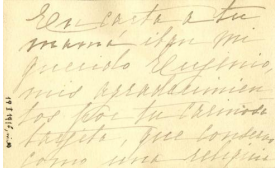 En carta a tu
mamá iban mi
querido Eugenio,
mis agradecimien
tos por tu cariñosa
tarjeta, que conservo
como una reliquia